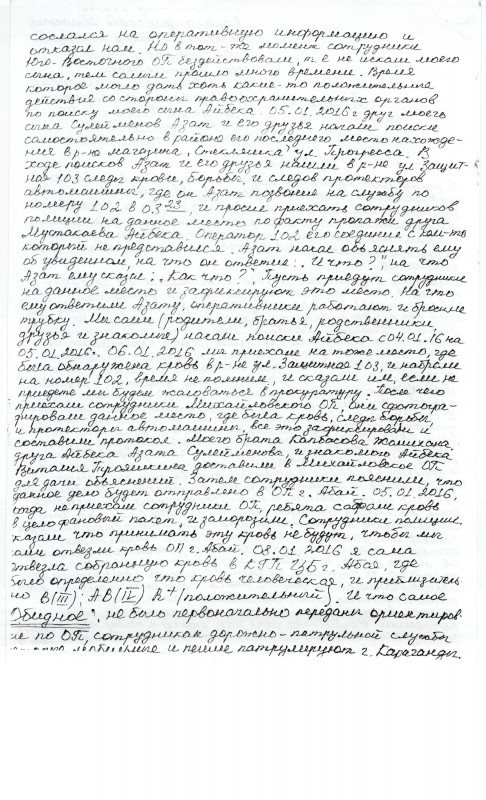 сослался на оперативную информацию и
отказал нам. Но в тот-же момент сотрудники
Юго-Восточного ОП бездействовали, т.е не искали моего
сына, тем самым прошло много времени. Время
которое могло дать хоть какие-то положительные
действия со стороны правоохранительных органов
по поиску моего сына Айбека. 05.01.2016г друг моего
сына Сулейменов Азат и его друзья начали поиски
самостоятельно в районе его последнего место нахожде-
ния в р-не магазина "Стекляшка" ул. Прогресса. В
ходе поисков Азат и его друзья нашли в р-не ул. Защит-
ная 103 следы крови, борьбы, и следов протекторов
автомашины, где он Азат позвонил на службу по
номеру 102 в 03 23, и просил приехать сотрудников
полиции на данное место по факту пропажи друга
Мустакаева Айбека. Оператор 102 его соединил с кем-то
который не представился. Азат начал объяснять ему
об увиденном, на что он ответил: "И что?", на что
Азат ему сказал: "Как что?" Пусть приедут сотрудники
на данное место и зафиксируют это место. На что
ему ответили Азату, оперативники работают и бросили
трубку. Мы сами (родители, братья, родственники,
друзья и знакомые) начали поиски Айбека с 04.01.16 на
05.01.2016г. 06.01.2016 мы приехали на тоже место, где
была обнаружена кровь в р-не ул. Защитная 103, и набрали
на номер 102, время не помним, и сказали им, если не
приедете мы будем жаловаться в прокуратуру. После чего
приехали сотрудники Михайловского ОП, они сфотогра-
фировали данное место, где была кровь, следы борьбы,
и протекторы автомашины. Все это зафиксировали и
составили протокол. Моего брата Капбасова Жомихана
друга Айбека Азата Сулейменова, и знакомого Айбека
Виталия доставили в Михайловское ОП
для дачи объяснений. Затем сотрудники пояснили, что
данное дело будет отправлено в ОП г. Абай. 05.01.2016,
когда не приехали сотрудники ОП, ребята собрали кровь
в целофановый пакет, и заморозили. Сотрудники полиции
казали что принимать эту кровь не будут, чтобы мы
сами отвезли кровь ОП г. Абай. 08.01.2016 я сама
отвезла собранную кровь в КГП ЦБ г. Абая, где
было определенно что кровь человеческая, и приблизитель-
но В(III); АВ(IV) R+ (положительный). И что самое
"Обидное", не было первоначально переданы ориентиров-
ие по ОП, сотрудникам дорожно-патрульной службы
и пешие патрулируют г. Караганды.